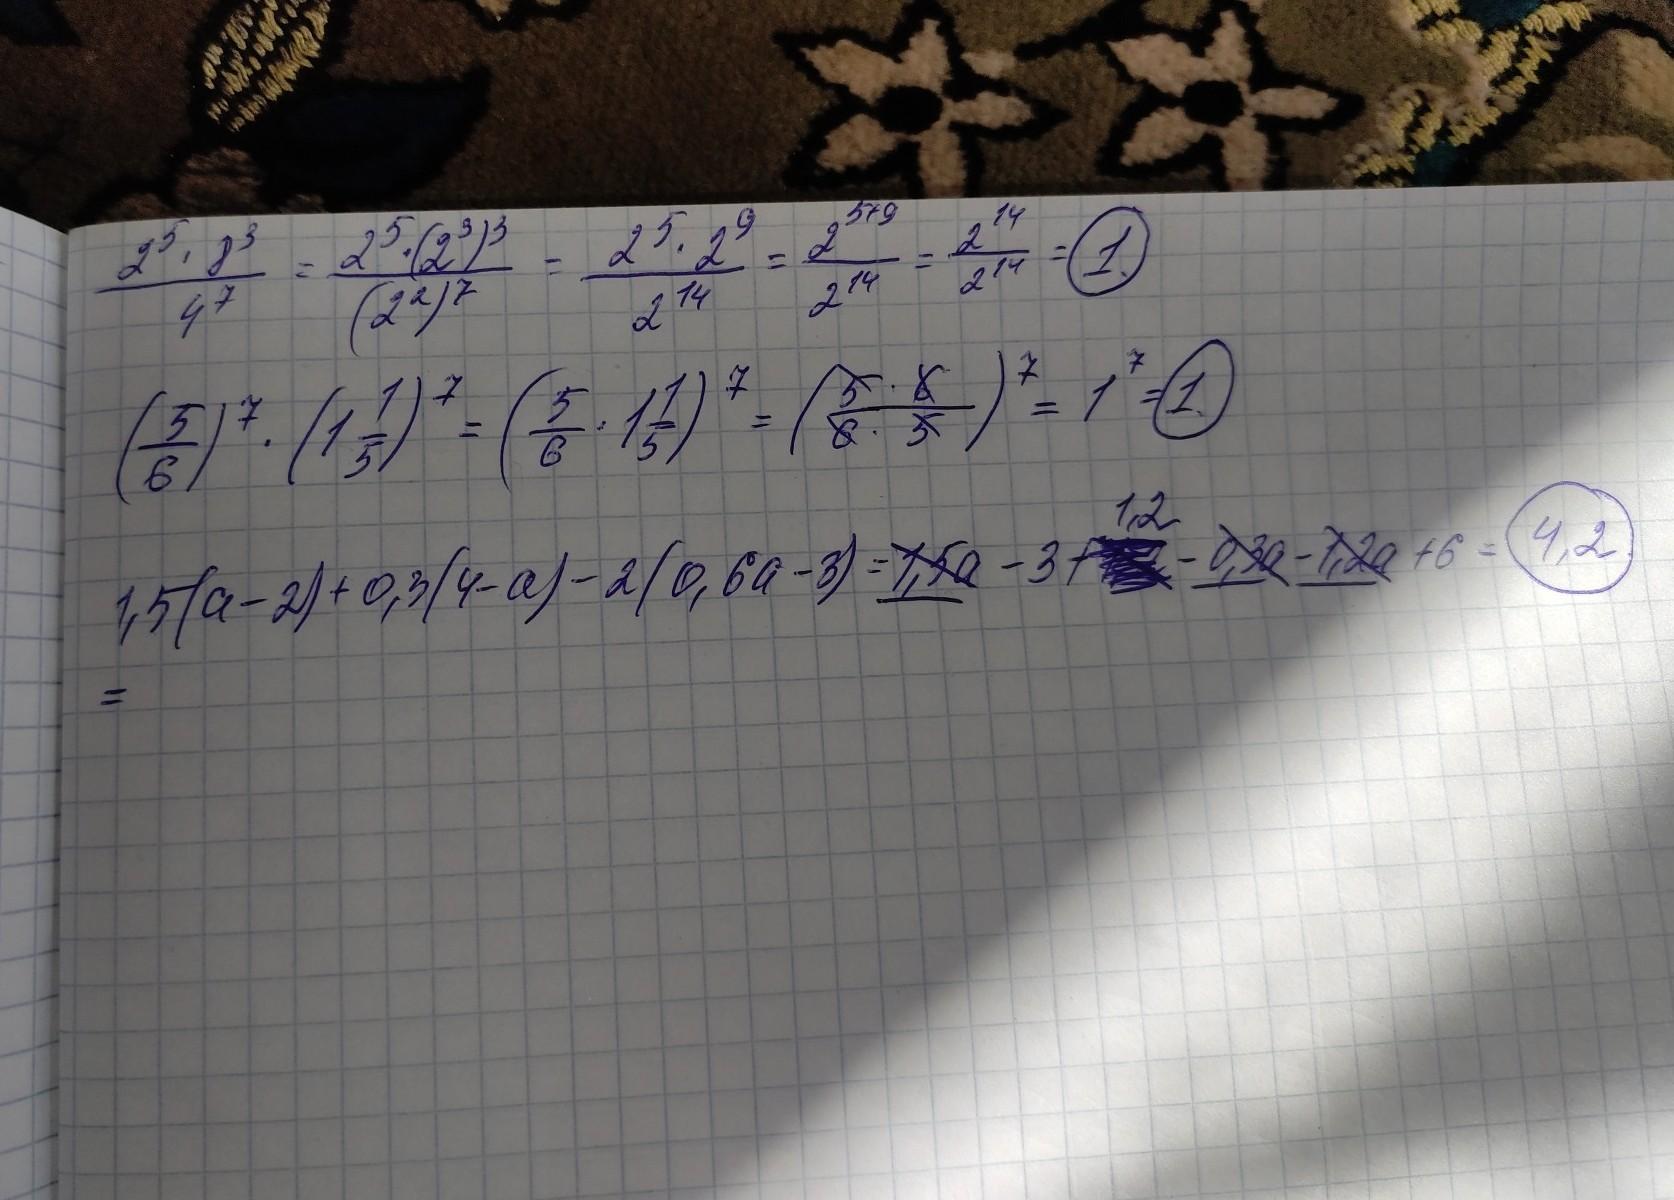 2⁵ · 8³ / 4⁷ = 2⁵ · (2³)³ / (2²)⁷ = 2⁵ · 2⁹ / 2¹⁴ = 2⁵⁺⁹ / 2¹⁴ = 2¹⁴ / 2¹⁴ = 1
(5/6)⁷ · (1 1/5)⁷ = (5/6 · 1 1/5)⁷ = (5 · 6 / 6 · 5)⁷ = 1⁷ = 1
1,5(a - 2) + 0,3(4 - a) - 2(0,6a - 3) = 1,5a - 3 + 1,2 - 0,3a - 1,2a + 6 = 4,2
=